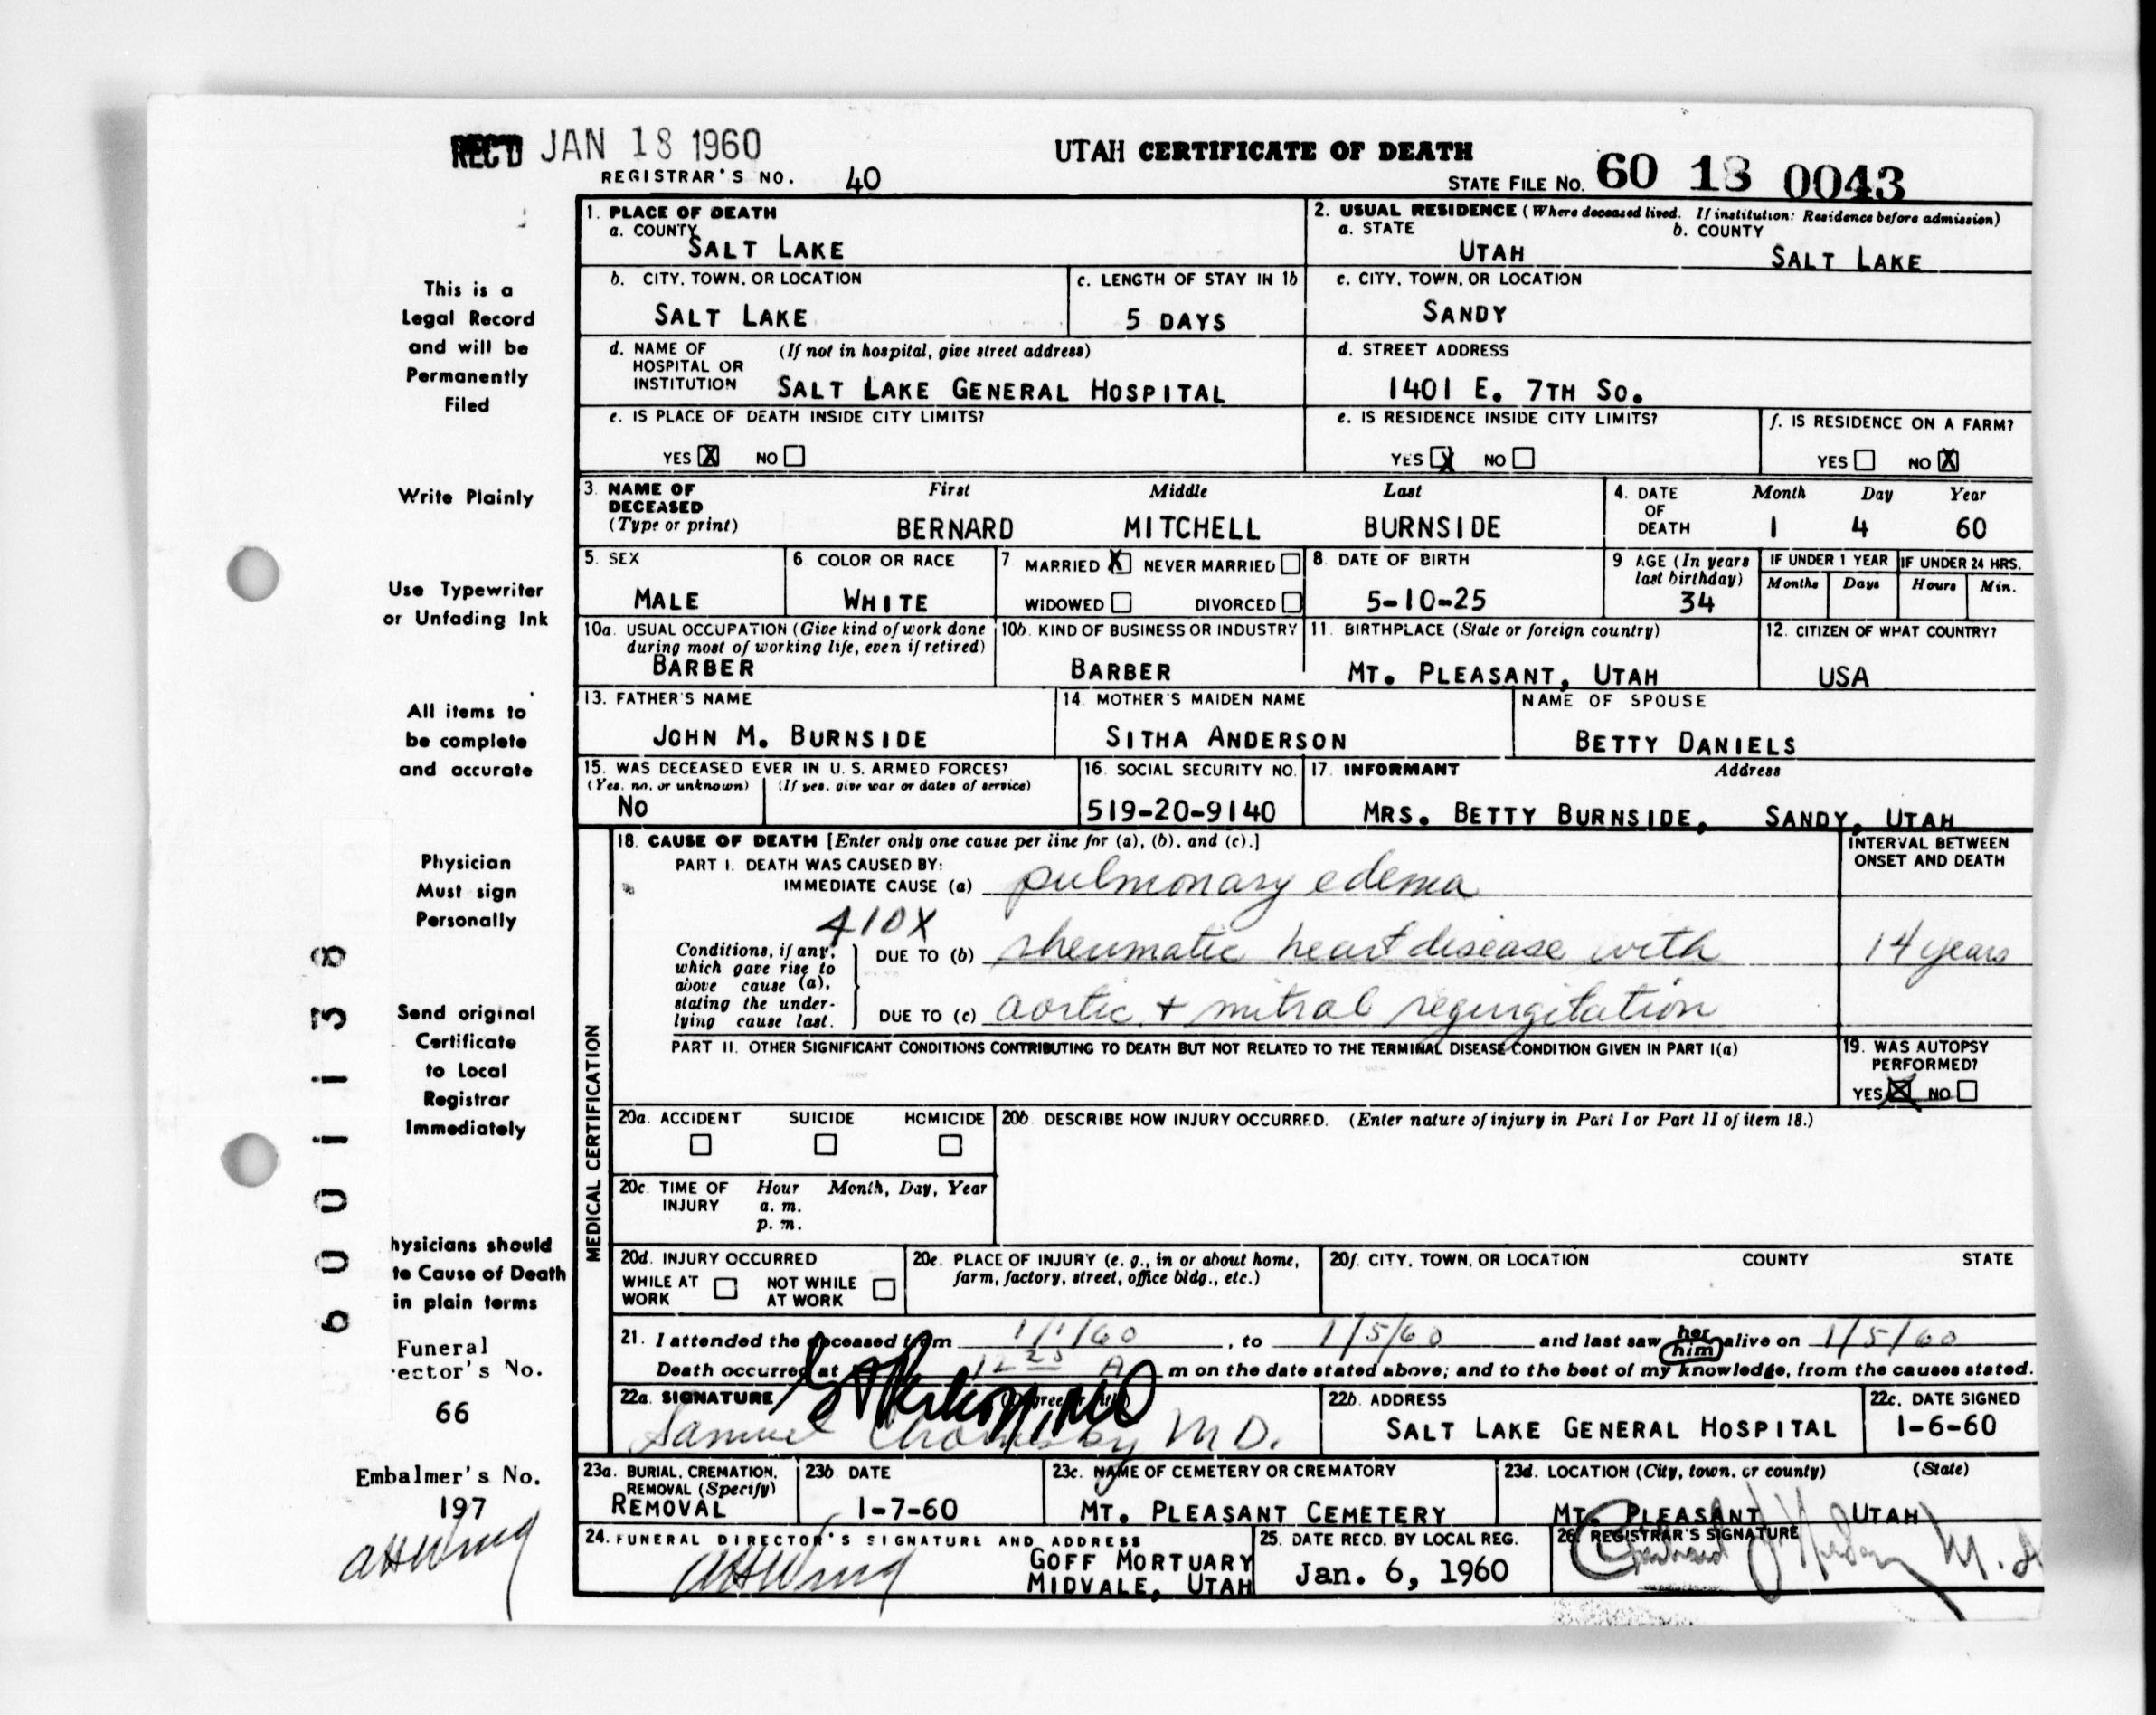 REC'D JAN 18 1960
UTAH CERTIFICATE OF DEATH
REGISTRAR'S NO. 40
STATE FILE NO. 60 18 0043
1. PLACE OF DEATH
a. COUNTY
SALT LAKE
2. USUAL RESIDENCE (Where deceased lived. If institution: Residence before admission)
a. STATE b. COUNTY
UTAH SALT LAKE
b. CITY, TOWN, OR LOCATION
SALT LAKE
c. LENGTH OF STAY IN 1b
5 DAYS
c. CITY, TOWN, OR LOCATION
SANDY
d. NAME OF (If not in hospital, give street address)
HOSPITAL OR
INSTITUTION SALT LAKE GENERAL HOSPITAL
d. STREET ADDRESS
1401 E. 7TH SO.
e. IS PLACE OF DEATH INSIDE CITY LIMITS?
YES X NO
e. IS RESIDENCE INSIDE CITY LIMITS?
YES X NO
f. IS RESIDENCE ON A FARM?
YES NO X
3. NAME OF DECEASED (Type or print) First Middle Last
BERNARD MITCHELL BURNSIDE
4. DATE OF DEATH Month Day Year
1 4 60
5. SEX
MALE
6. COLOR OR RACE
WHITE
7 MARRIED X NEVER MARRIED
WIDOWED DIVORCED
8. DATE OF BIRTH
5-10-25
9 AGE (In years last birthday)
34
IF UNDER 1 YEAR IF UNDER 24 HRS.
Months Days Hours Min.
10a. USUAL OCCUPATION (Give kind of work done
during most of working life, even if retired)
BARBER
10b. KIND OF BUSINESS OR INDUSTRY
BARBER
11. BIRTHPLACE (State or foreign country)
MT. PLEASANT, UTAH
12. CITIZEN OF WHAT COUNTRY?
USA
13. FATHER'S NAME
JOHN M. BURNSIDE
14. MOTHER'S MAIDEN NAME
SITHA ANDERSON
NAME OF SPOUSE
BETTY DANIELS
15. WAS DECEASED EVER IN U. S. ARMED FORCES?
(Yes, no, or unknown) (If yes, give war or dates of service)
NO
16. SOCIAL SECURITY NO.
519-20-9140
17. INFORMANT Address
MRS. BETTY BURNSIDE, SANDY, UTAH
MEDICAL CERTIFICATION
18. CAUSE OF DEATH [Enter only one cause per line for (a), (b), and (c).]
INTERVAL BETWEEN
ONSET AND DEATH
PART I. DEATH WAS CAUSED BY:
IMMEDIATE CAUSE (a) pulmonary edema
410X
Conditions, if any,
which gave rise to
above cause (a),
stating the under-
lying cause last.
DUE TO (b) rheumatic heart disease with 14 years
DUE TO (c) aortic + mitral regurgitation
PART II. OTHER SIGNIFICANT CONDITIONS CONTRIBUTING TO DEATH BUT NOT RELATED TO THE TERMINAL DISEASE CONDITION GIVEN IN PART I(a)
19. WAS AUTOPSY
PERFORMED?
YES X NO
20a. ACCIDENT SUICIDE HOMICIDE
20b. DESCRIBE HOW INJURY OCCURRED. (Enter nature of injury in Part I or Part II of item 18.)
20c. TIME OF INJURY Hour Month, Day, Year
a. m.
p. m.
20d. INJURY OCCURRED
WHILE AT WORK NOT WHILE AT WORK
20e. PLACE OF INJURY (e. g., in or about home,
farm, factory, street, office bldg., etc.)
20f. CITY, TOWN, OR LOCATION COUNTY STATE
21. I attended the deceased from 1/1/60, to 1/5/60 and last saw her him alive on 1/5/60
Death occurred at 12 25 A m on the date stated above; and to the best of my knowledge, from the causes stated.
22a. SIGNATURE
Samuel M D.
22b. ADDRESS
SALT LAKE GENERAL HOSPITAL
22c. DATE SIGNED
1-6-60
23a. BURIAL, CREMATION,
REMOVAL (Specify)
REMOVAL
23b. DATE
1-7-60
23c. NAME OF CEMETERY OR CREMATORY
MT. PLEASANT CEMETERY
23d. LOCATION (City, town, or county) (State)
MT. PLEASANT UTAH
24. FUNERAL DIRECTOR'S SIGNATURE AND ADDRESS
GOFF MORTUARY
MIDVALE, UTAH
25. DATE RECD. BY LOCAL REG.
Jan. 6, 1960
26. REGISTRAR'S SIGNATURE
This is a
Legal Record
and will be
Permanently
Filed
Write Plainly
Use Typewriter
or Unfading Ink
All items to
be complete
and accurate
Physician
Must sign
Personally
Send original
Certificate
to Local
Registrar
Immediately
hysicians should
te Cause of Death
in plain terms
Funeral
rector's No.
66
Embalmer's No.
197
6001138